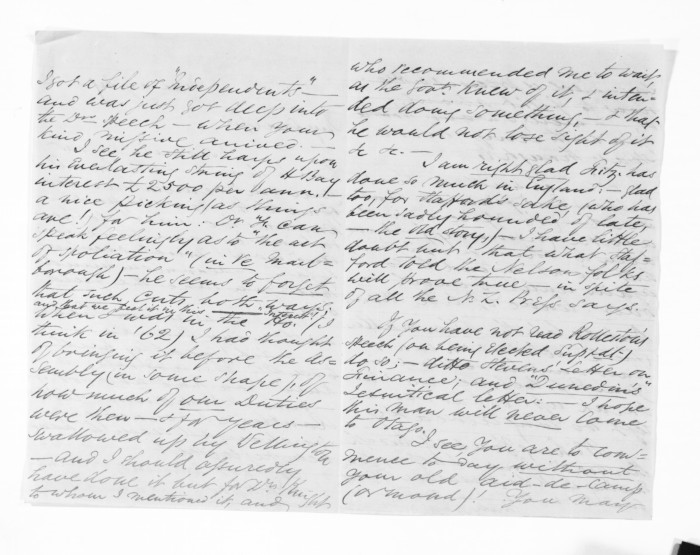 I got a file of "Independents" —
and was just got deep into
the Drs speech — when your
kind missive arrived. —
I see he still harps upon
his Everlasting string of H Bay
interest £2500 per ann. —
a nice picking (as things
are!) for him: Dr. can
speak feelingly as to "the act
of spoliation" (in re Marl-
borough) — he seems to forget
that such cuts both ways;
When I was in the Ho. (I
think in '62) I had thought
of bringing it before the As-
sembly (in some shape), of
how much of our Duties
were then — & for years —
swallowed up by Wellington
— and I should assuredly
have done it but for Dr. Knight
to whom I mentioned it, and
who recommended me to wait,
as the Govt. knew of it, & inten-
ded doing something, — & that
he would not lose sight of it
&c &c. —
I am right glad Fitz. has
done so much in England: — glad
too, for Stafford's sake, (who has
been sadly hounded of late,
— the old story,) — I have little
doubt but that what Staf-
ford told the Nelson folks
will prove true — in spite
of all the N.Z. Press says.
If you have not read Rolleston's
speech (on being Elected Supdt.)
do so; — ditto Stevens' Letter on
Finance; and "Dunedin's"
Jesuitical letter: — I hope
this man will never come
to Otago.
I see you are to com-
mence to-day without
your old aid-de-camp
(Ormond)! You may